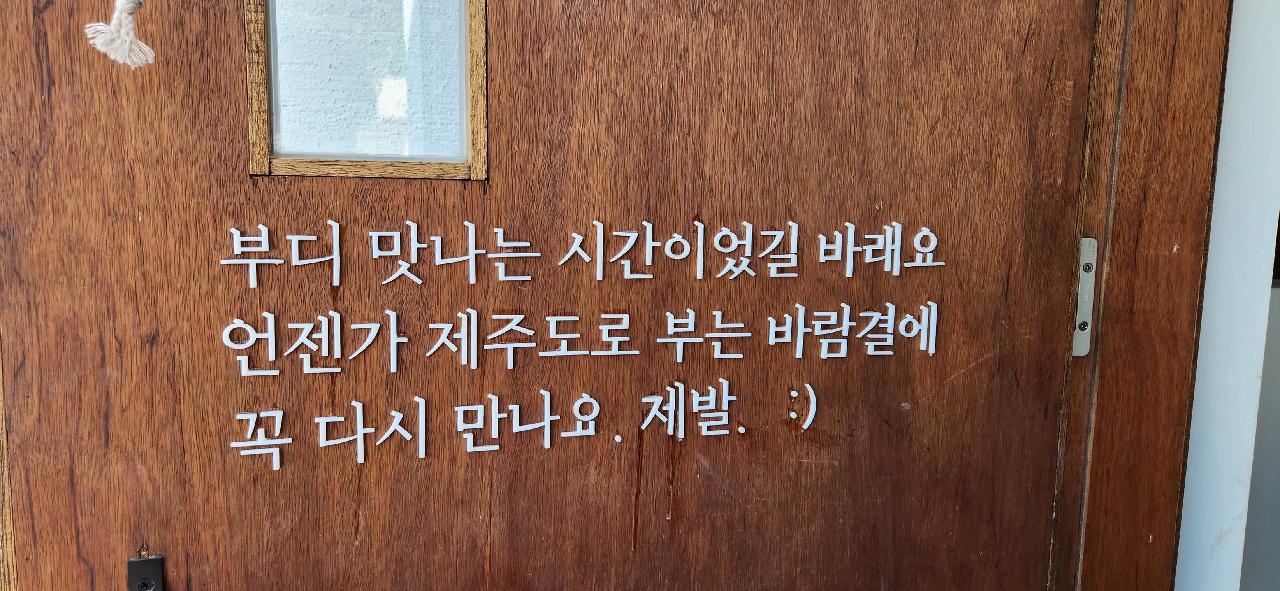 부디 맛나는 시간이었길 바래요
언젠가 제주도로 부는 바람결에
꼭 다시 만나요. 제발. :)